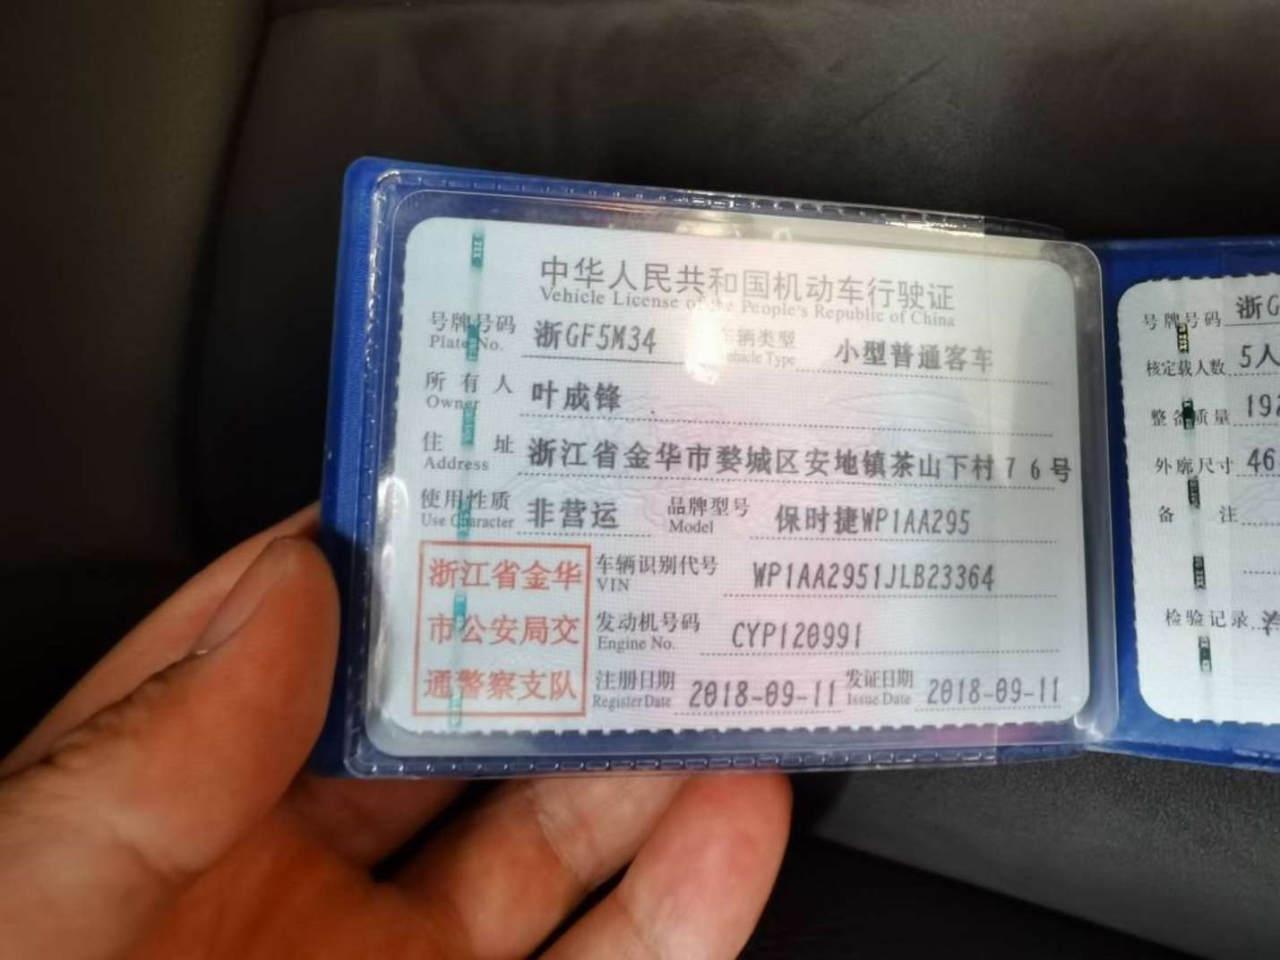 中华人民共和国机动车行驶证
Vehicle License of the People's Republic of China
号牌号码 浙GF5M34 车辆类型 小型普通客车
Plate No. Vehicle Type
所有人 叶成锋
Owner
住址 浙江省金华市婺城区安地镇茶山下村76号
Address
使用性质 非营运 品牌型号 保时捷WP1AA295
Use Character Model
浙江省金华
市公安局交
通警察支队
车辆识别代号 WP1AA2951JLB23364
VIN
发动机号码 CYP120991
Engine No.
注册日期 2018-09-11 发证日期 2018-09-11
Register Date Issue Date
号牌号码 浙G
核定载人数 5人
整备质量 19
外廓尺寸 46
备注
检验记录